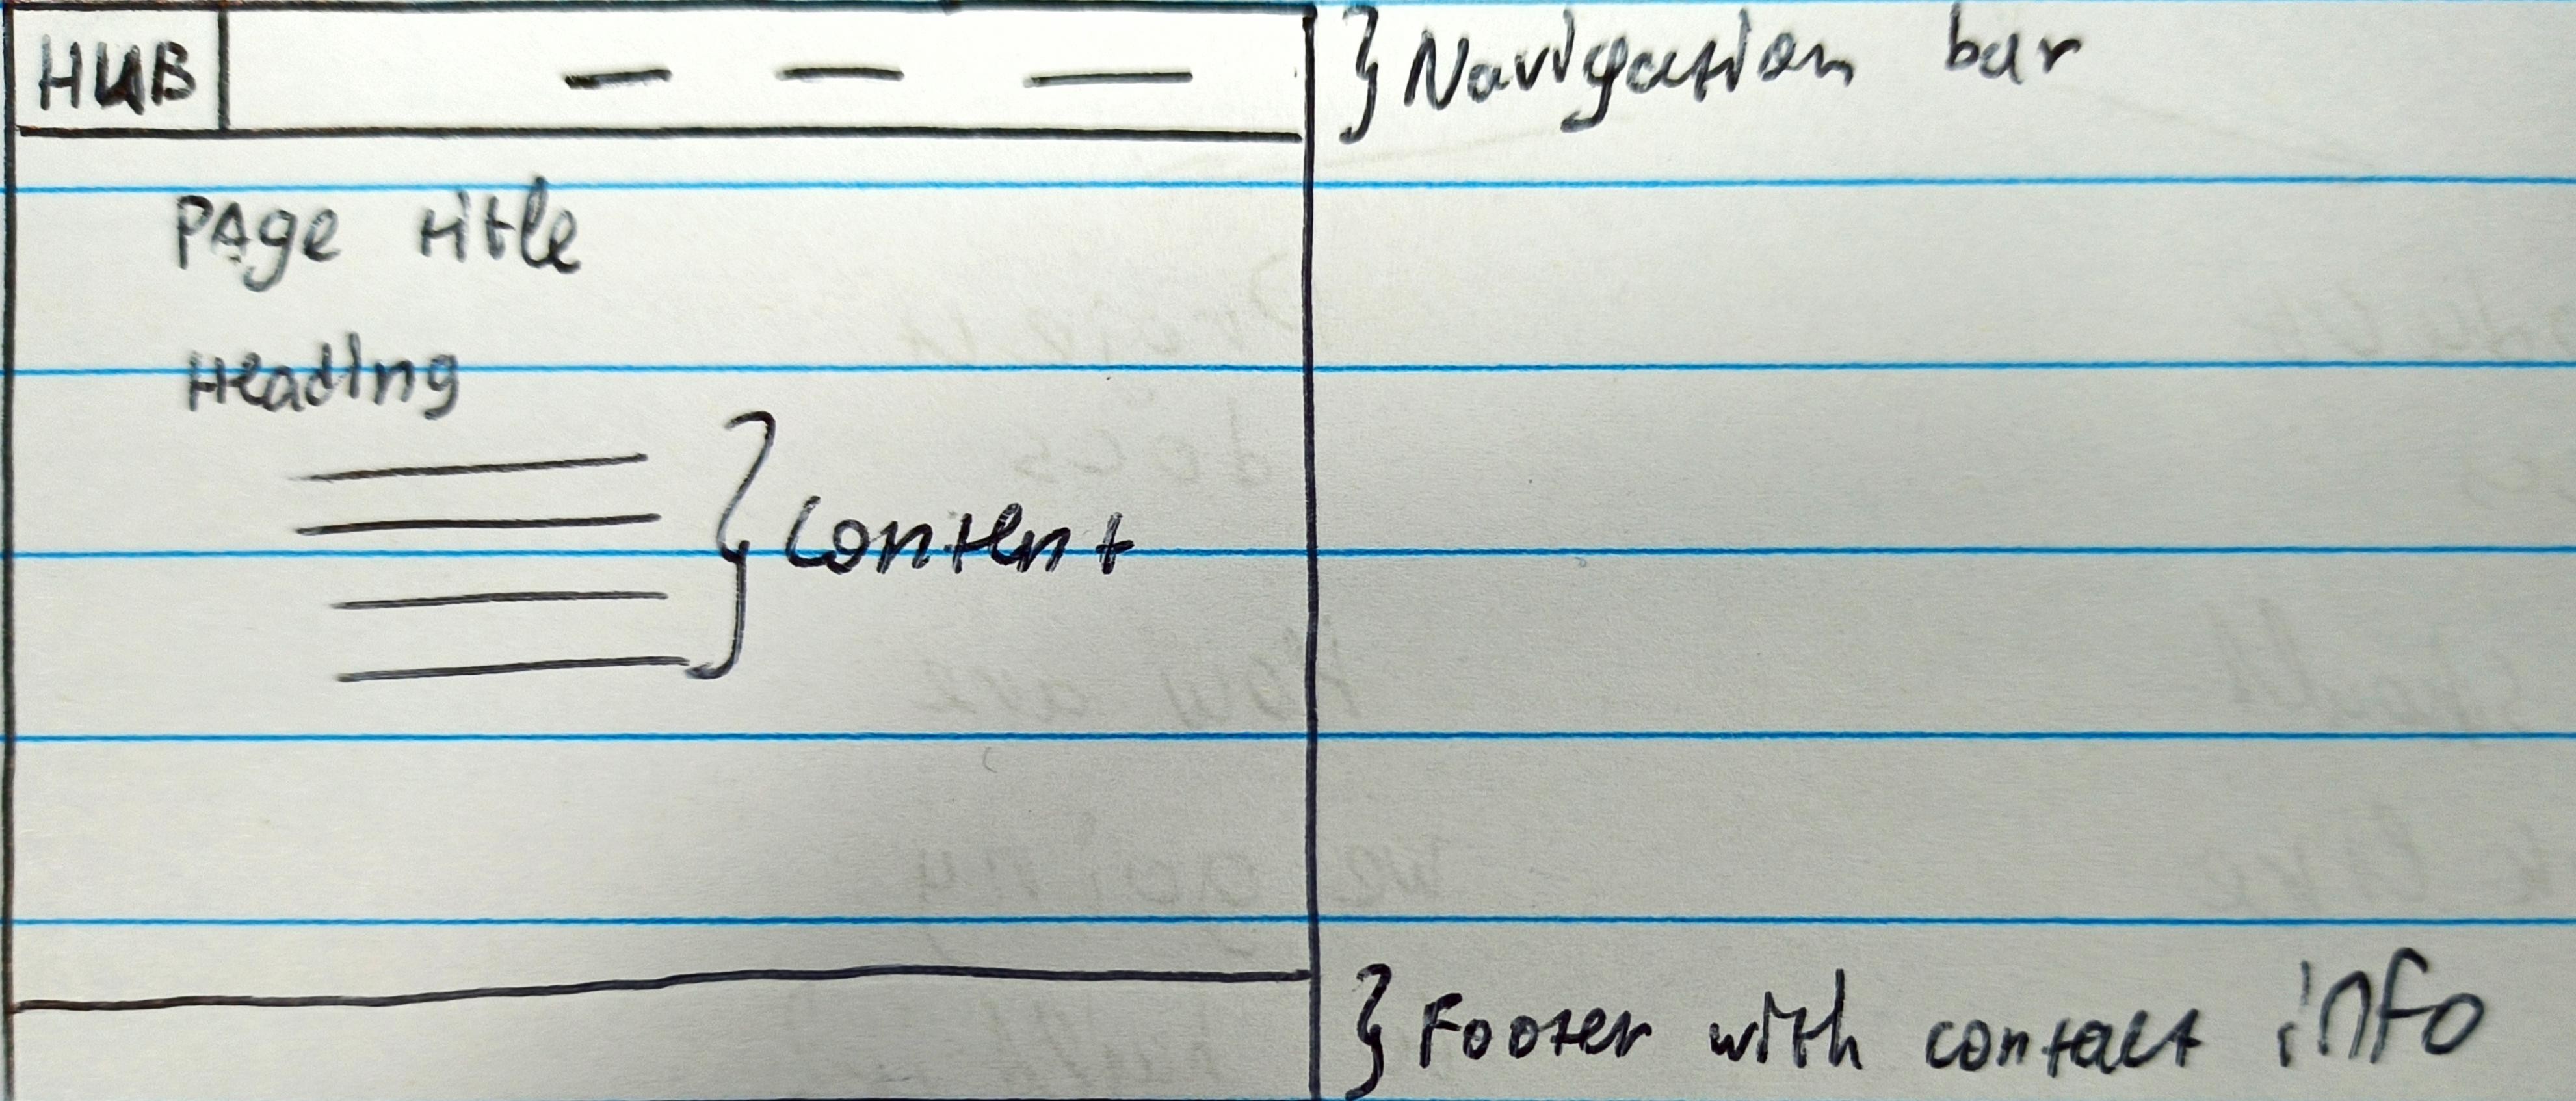 HUB
} Navigation bar
Page title
Heading
} Content
} Footer with contact info